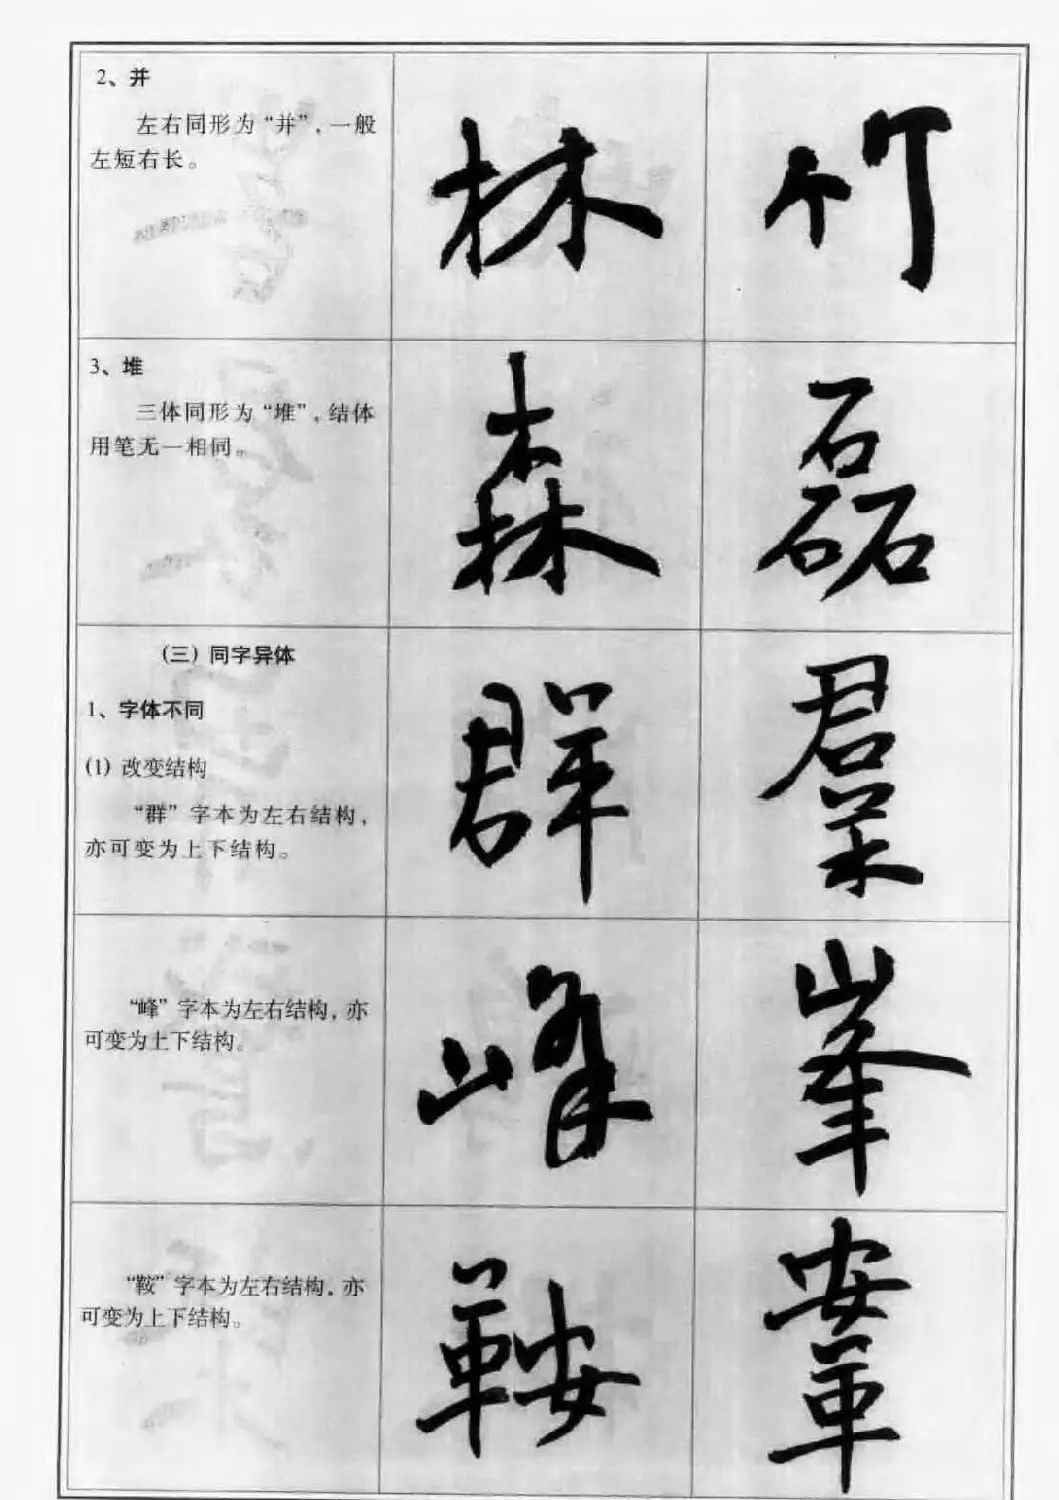 2、并
左右同形为“并”，一般
左短右长。
林 竹
3、堆
三体同形为“堆”，结体
用笔无一相同。
森 磊
（三）同字异体
1、字体不同
(1) 改变结构
“群”字本为左右结构，
亦可变为上下结构。
群 羣
“峰”字本为左右结构，亦
可变为上下结构。
峰 峯
“鞍”字本为左右结构，亦
可变为上下结构。
鞍 鞌